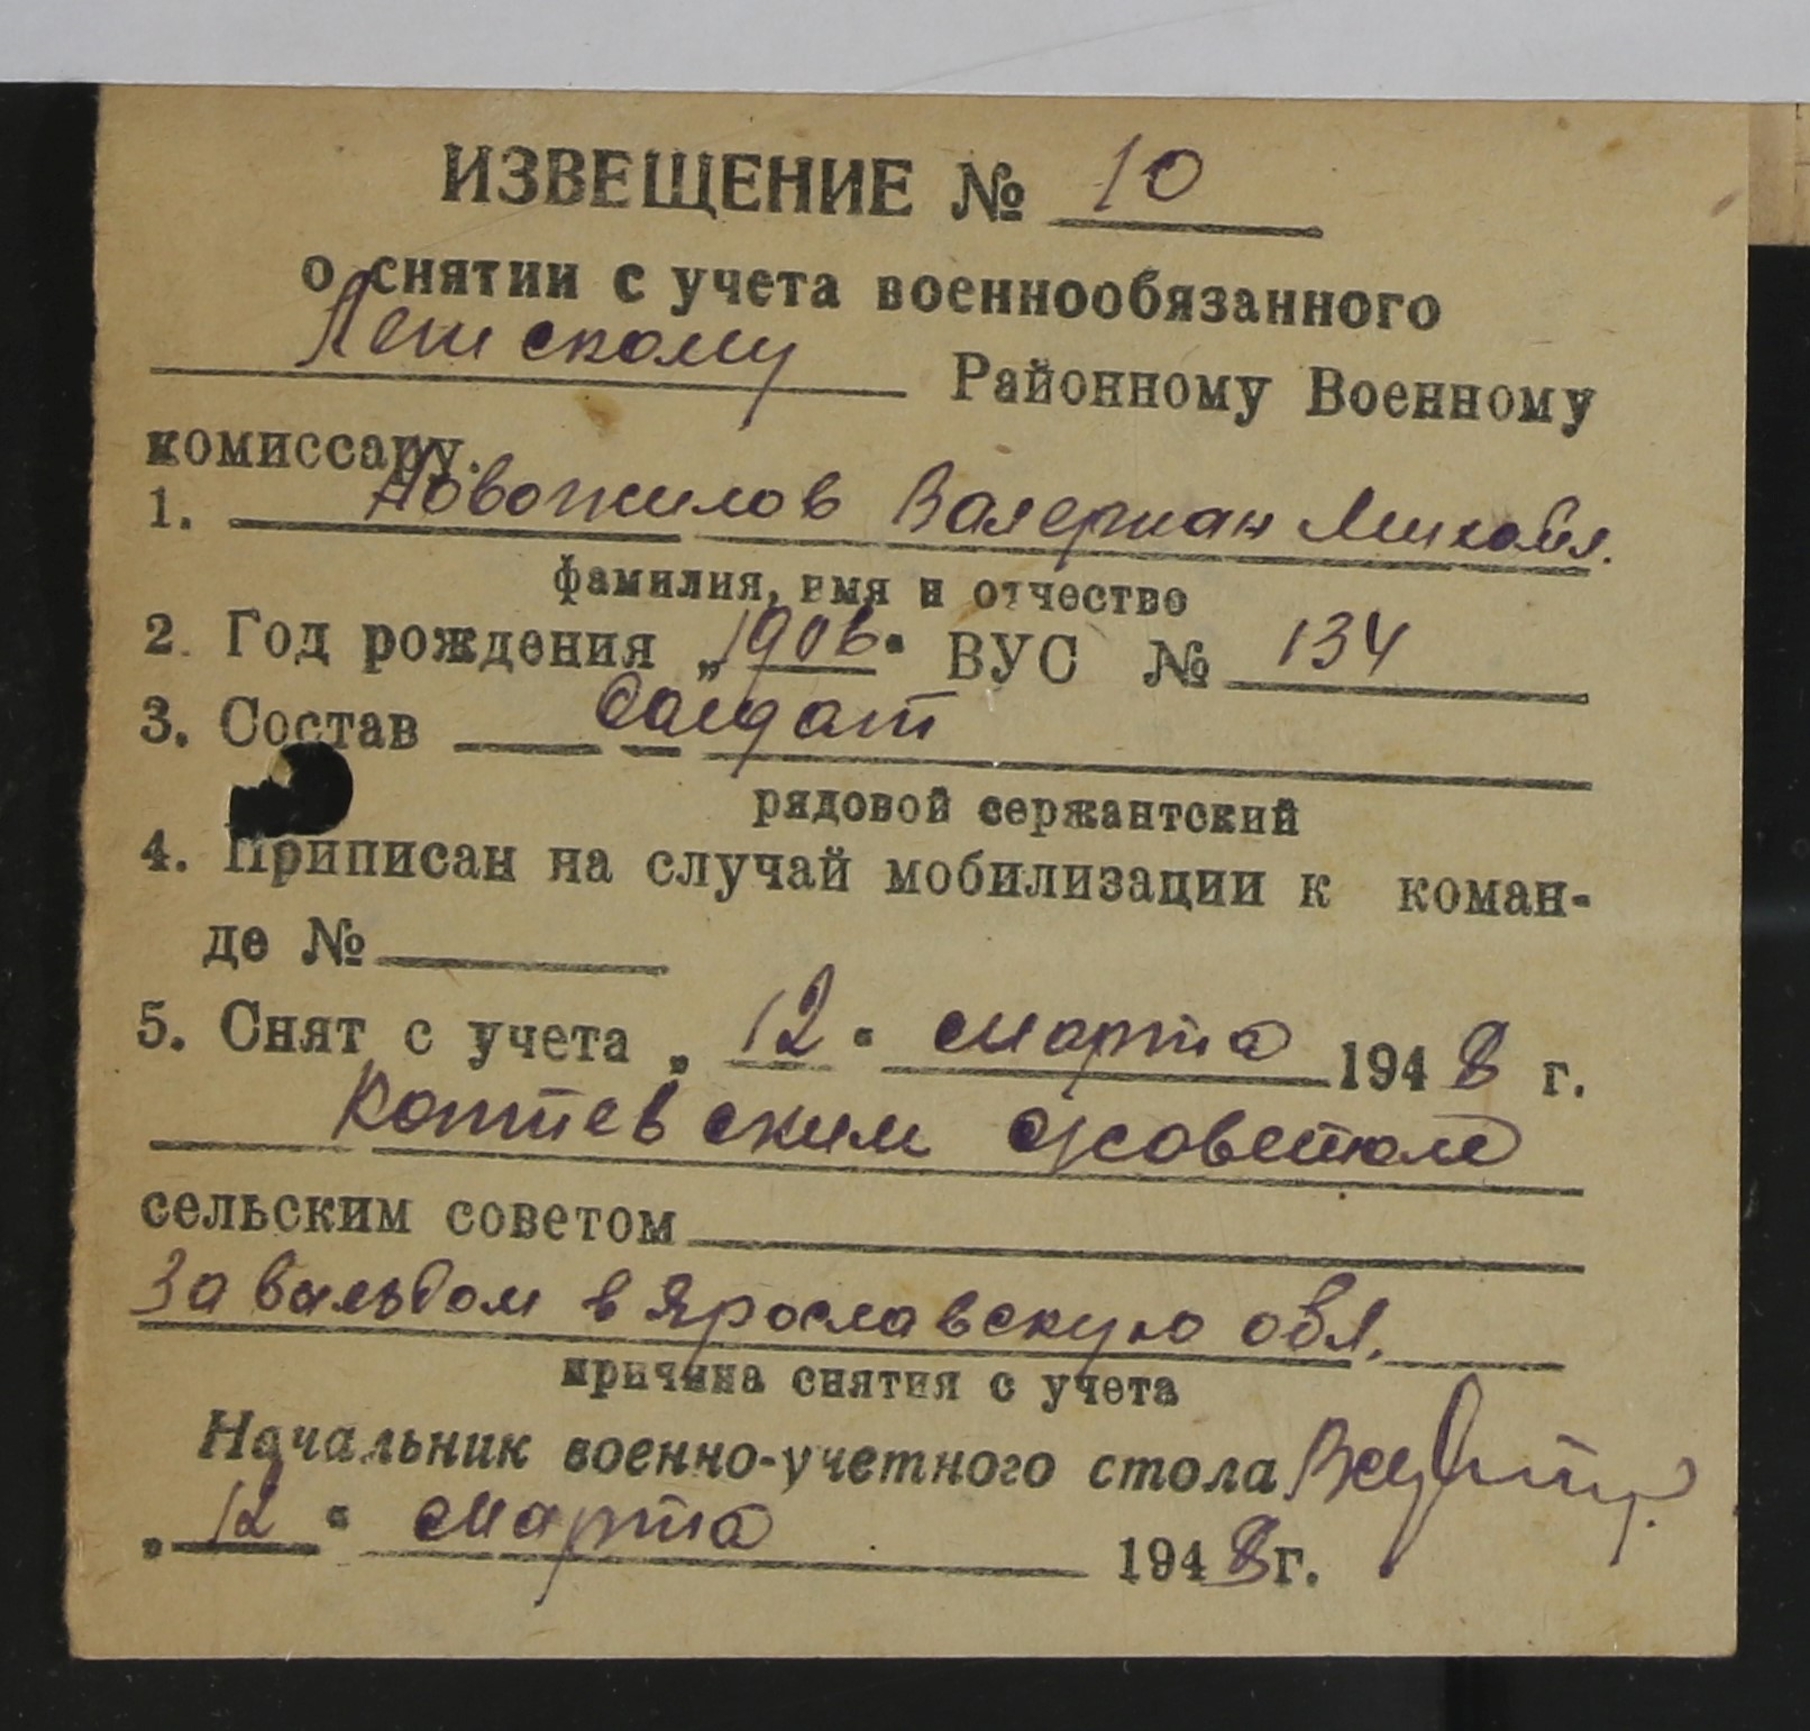 ИЗВЕЩЕНИЕ № 10
о снятии с учета военнообязанного
Районному Военному
комиссару.
1. Новожилов Валериан Михайл.
фамилия, имя и отчество
2. Год рождения „1906" ВУС № 134
3. Состав Солдат
рядовой сержантский
4. Приписан на случай мобилизации к коман-
де №
5. Снят с учета „12" марта 1948 г.
Коптевским с/советом
сельским советом
За выездом в Ярославскую обл.
причина снятия с учета
Начальник военно-учетного стола
„12" марта 1948 г.